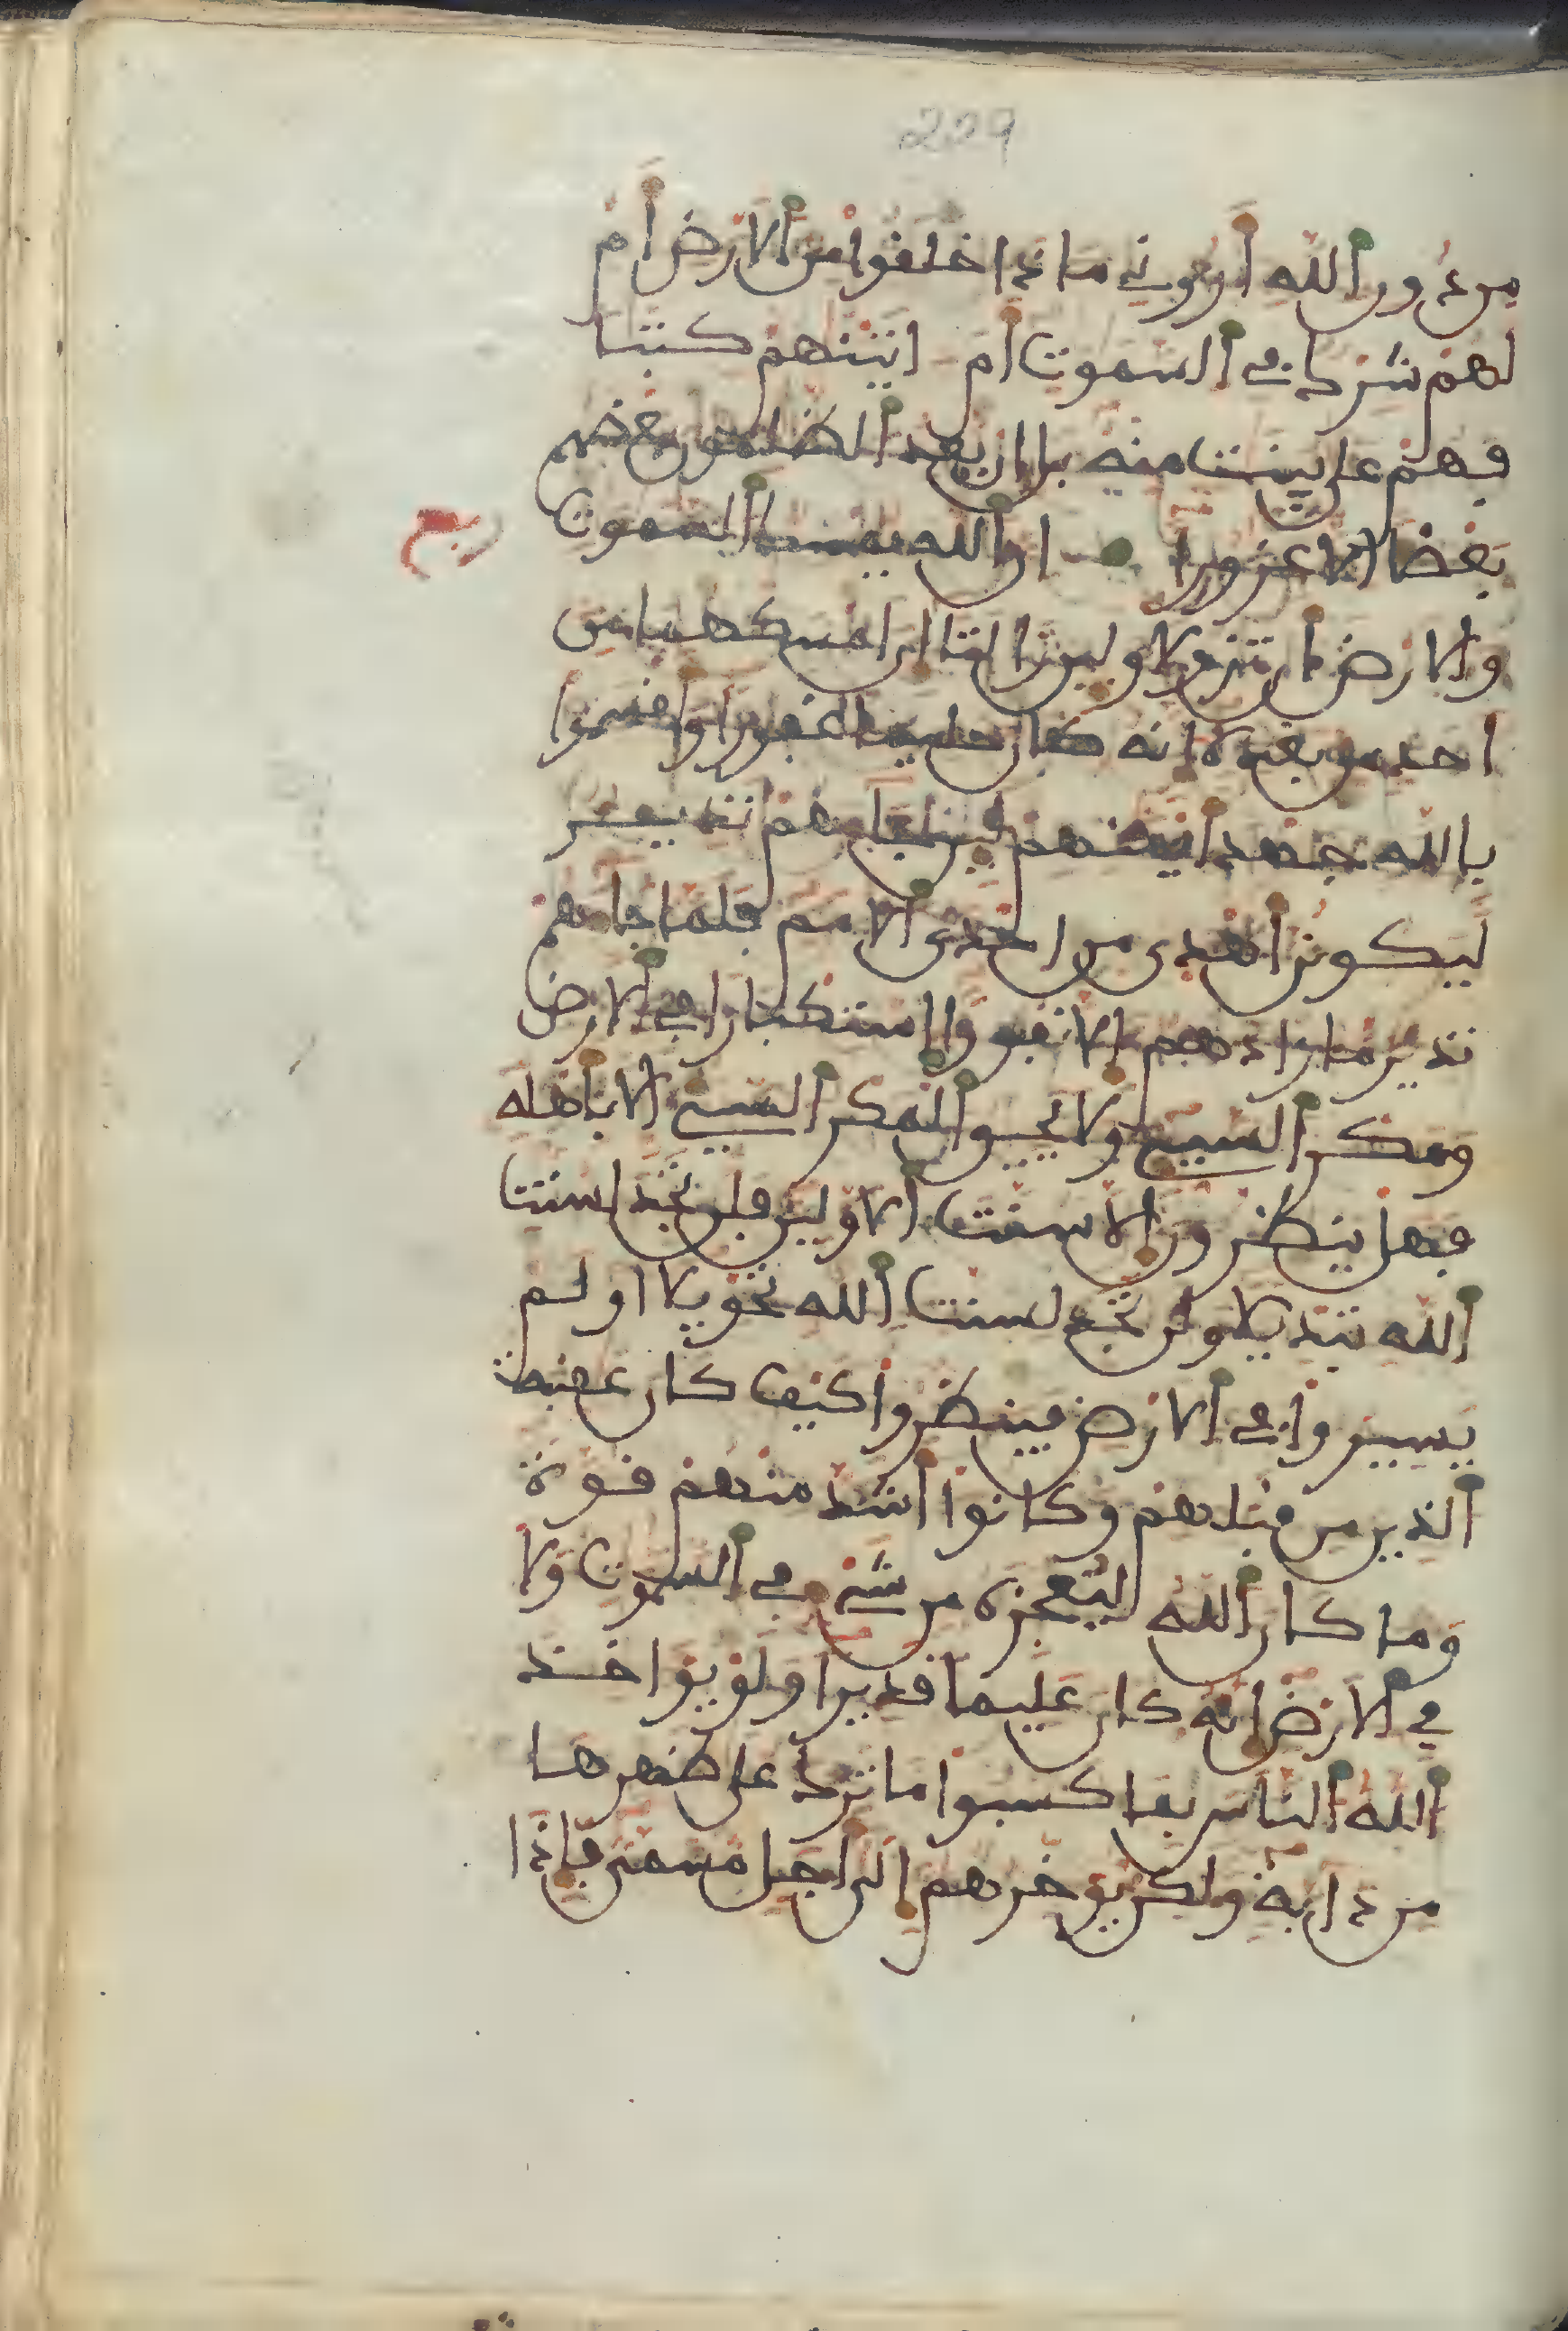 229
من دون الله أروني ماذا خلقوا من الارض أم
لهم شرك في السموت أم اتينهم كتبا
فهم على بينت منه بل ان يعد الظلمون بعضهم
بعضا الا غرورا ان الله يمسك السموت
ربع
والارض أن تزولا ولين زالتا ان امسكهما من
احد من بعده انه كان حليما غفورا وأقسموا
بالله جهد أيمنهم لين جاهم نذير
ليكونن أهدى من احدى الامم فلما جاهم
نذير ما زادهم الا نفورا استكبارا في الارض
ومكر السيي ولا يحيق المكر السيي الا بأهله
فهل ينظرون الا سنت الاولين فلن تجد لسنت
الله تبديلا ولن تجد لسنت الله تحويلا اولم
يسيروا في الارض فينظروا كيف كان عقبة
الذين من قبلهم وكانوا أشد منهم قوة
وما كان الله ليعجزه من شي في السموت ولا
في الارض انه كان عليما قديرا ولو يواخذ
الله الناس بما كسبوا ما ترك على ظهرها
من دابة ولكن يوخرهم الى أجل مسمى فإذا